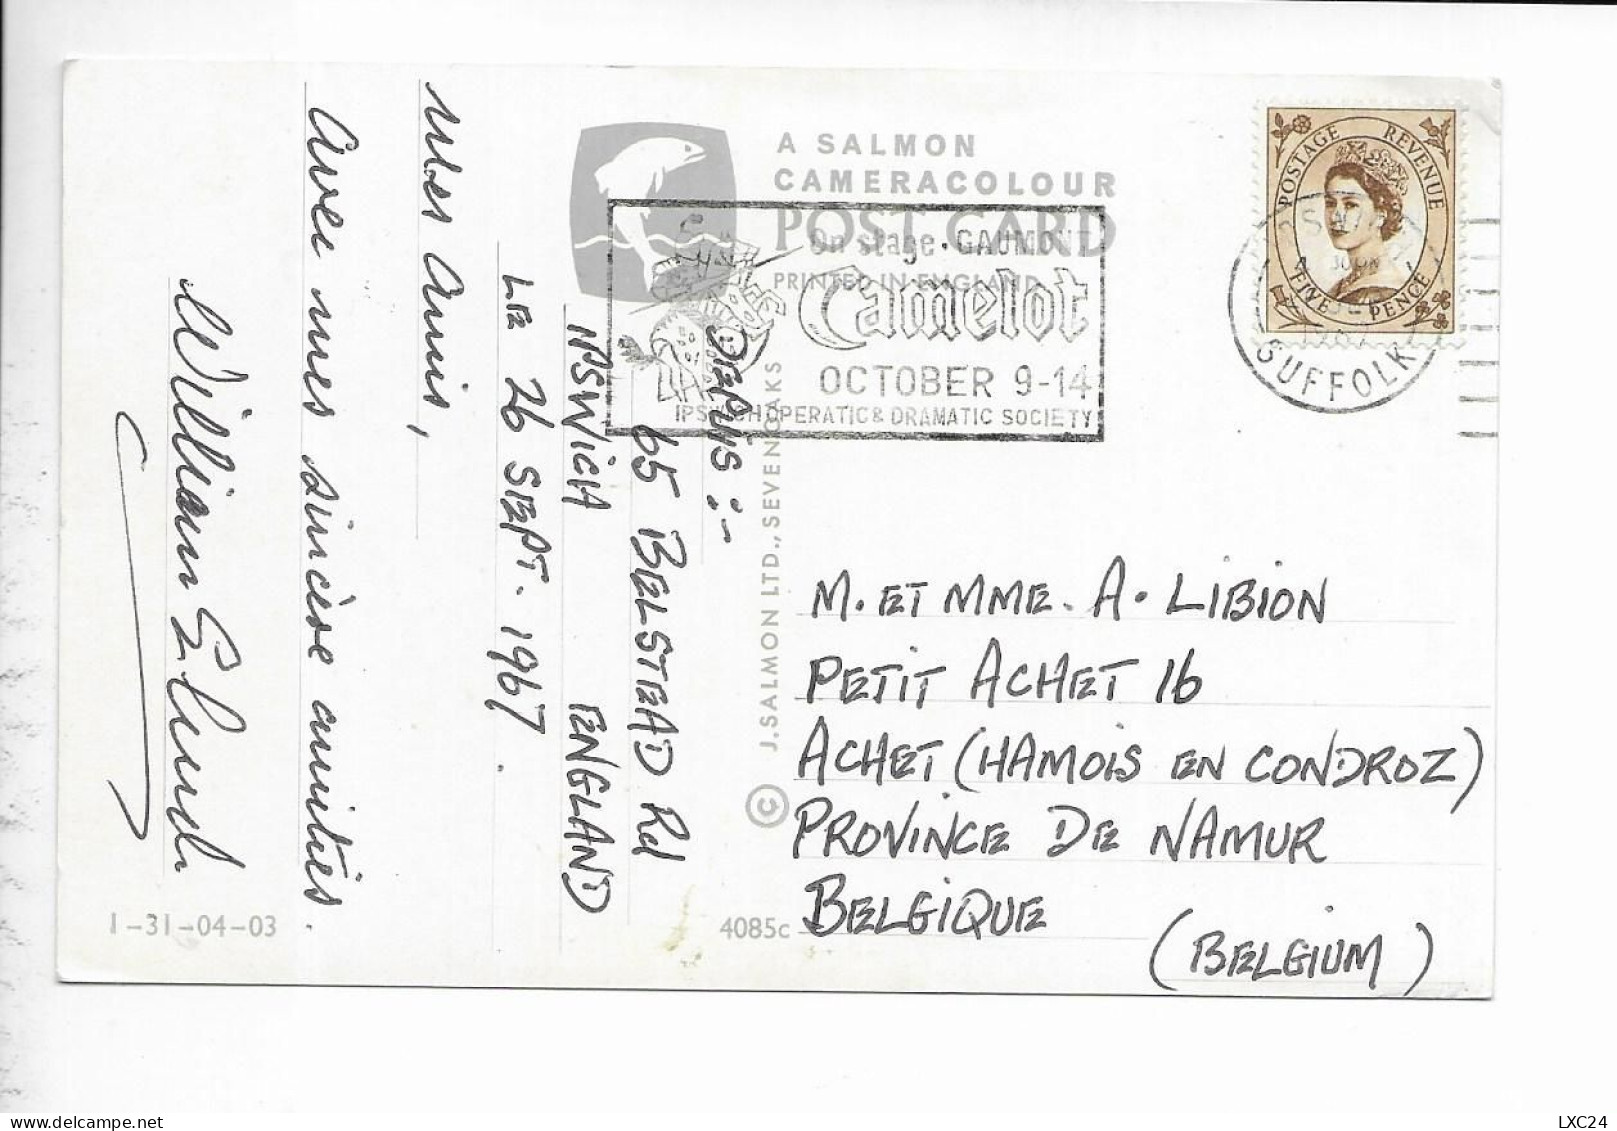 DEPUIS :-
65 BELSTEAD Rd
IPSWICH ENGLAND
LE 26 SEPT. 1967.
Mes Amis,
Avec mes sincère amitiès.
William
1-31-04-03
A SALMON
CAMERACOLOUR
POST CARD
PRINTED IN ENGLAND
© J. SALMON LTD., SEVENOAKS
4085c
On stage · GAUMONT
Camelot
OCTOBER 9-14
IPSWICH OPERATIC & DRAMATIC SOCIETY
POSTAGE REVENUE
FIVE PENCE
SUFFOLK
M. ET MME. A. LIBION
PETIT ACHET 16
ACHET (HAMOIS EN CONDROZ)
PROVINCE DE NAMUR
BELGIQUE
(BELGIUM)
LXC24